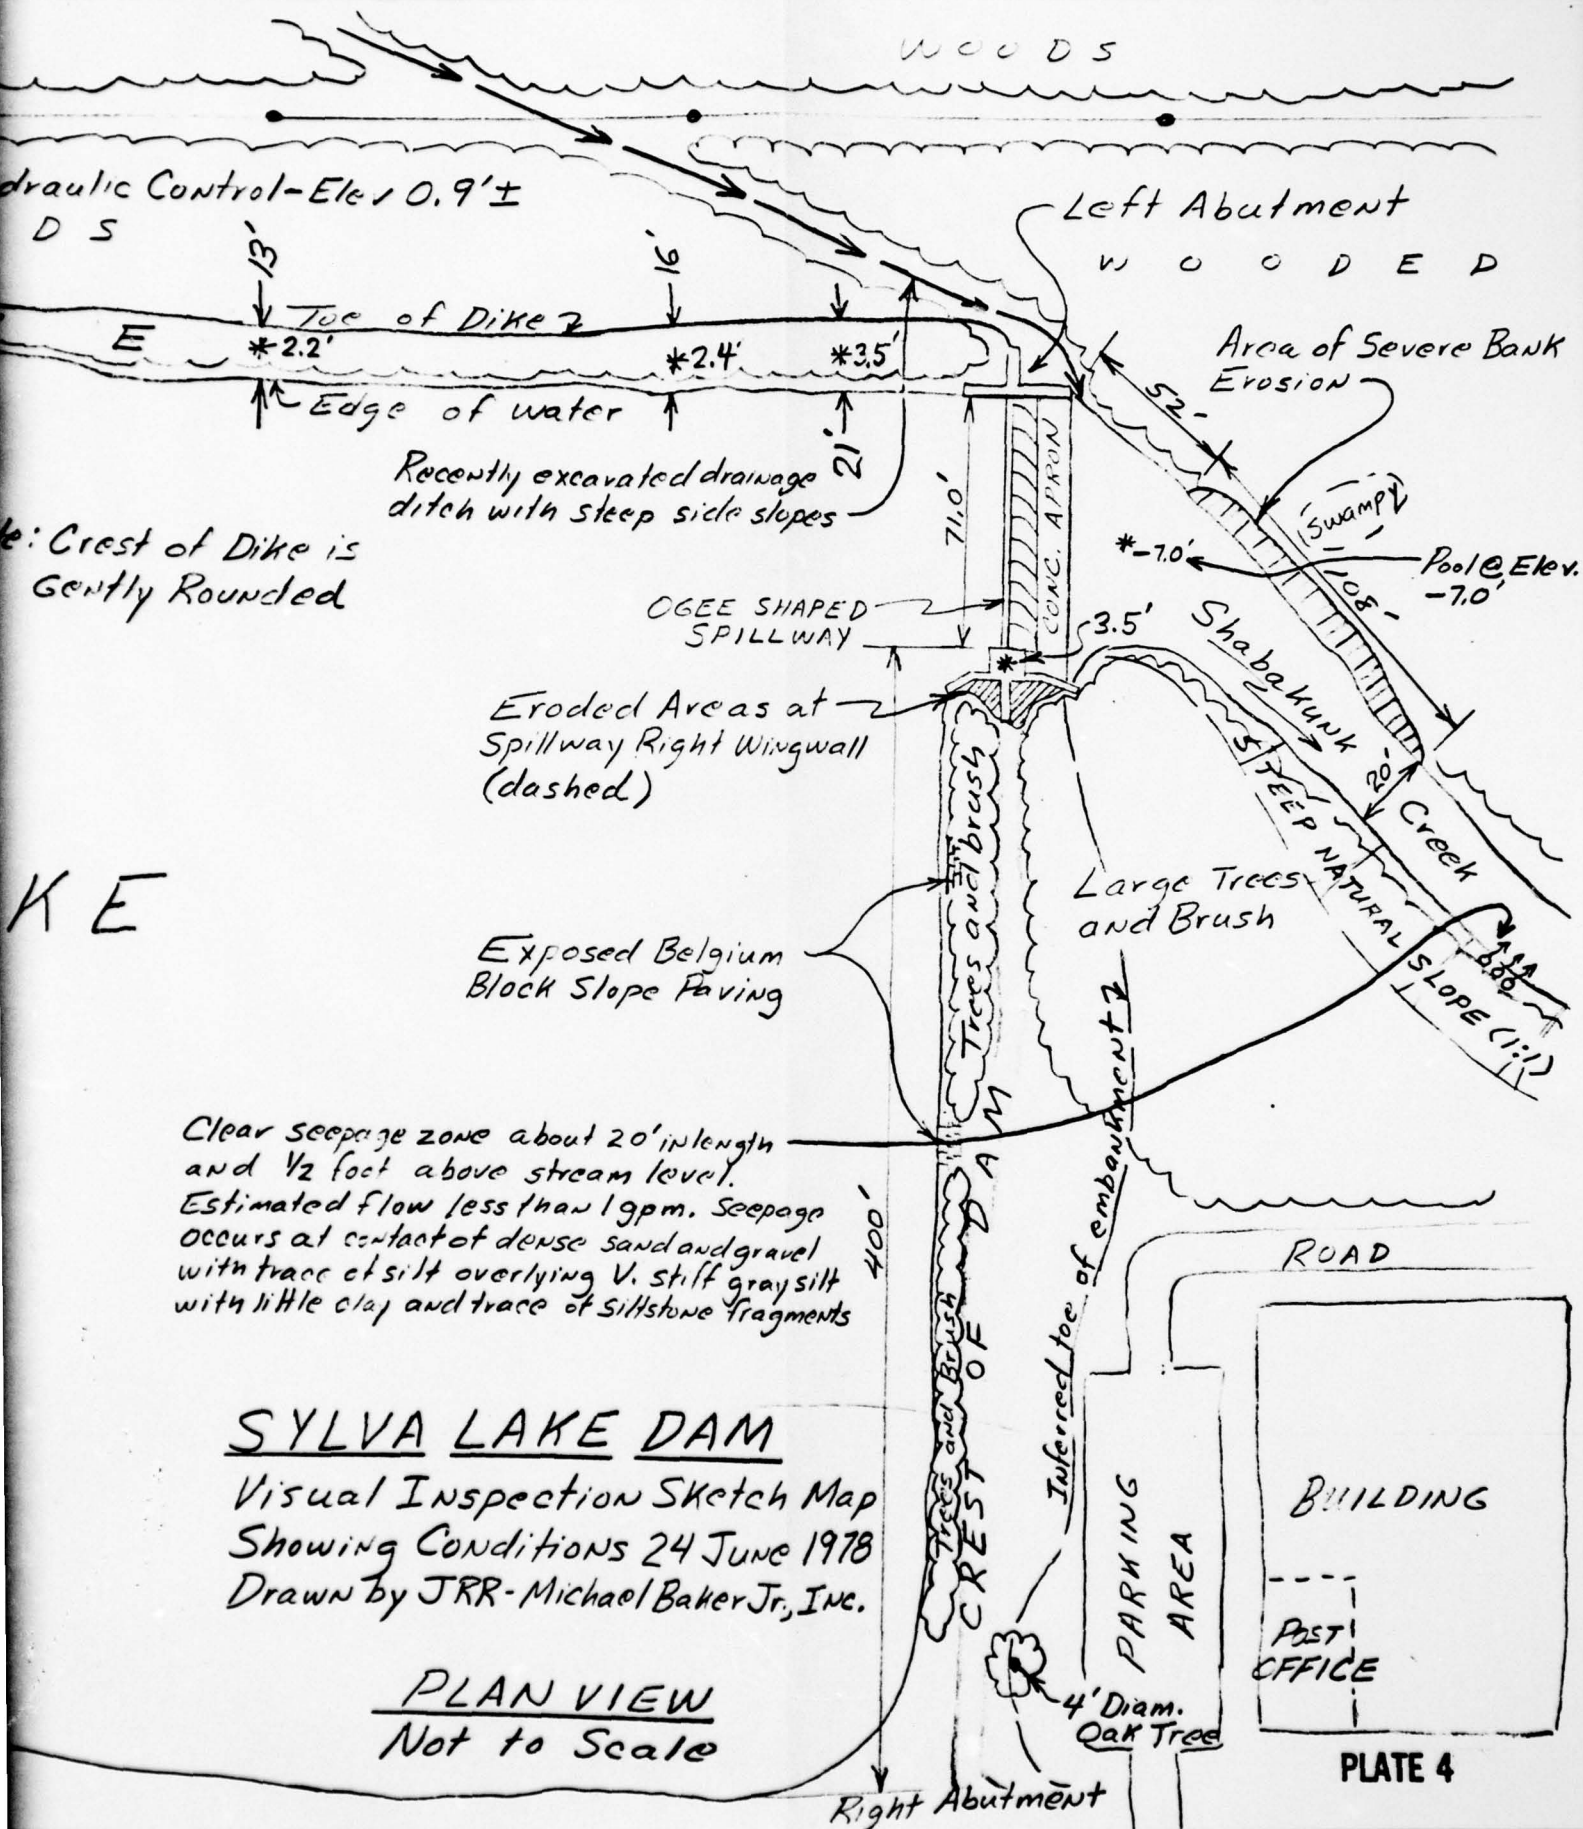 WOODS
draulic Control-Elev 0.9'±
D S
13'
16'
Left Abutment
WOODED
Toe of Dike
E
*2.2'
*2.4'
*3.5'
Edge of water
21'
Area of Severe Bank
Erosion
52'
Recently excavated drainage
ditch with steep side slopes
71.0'
CONC. APRON
(Swampy)
*-7.0'
Pool @ Elev.
-7.0'
108'
e: Crest of Dike is
Gently Rounded
OGEE SHAPED
SPILLWAY
3.5'
*
Shabakunk
Creek
20'
Eroded Areas at
Spillway Right Wingwall
(dashed)
STEEP NATURAL SLOPE (1:1)
Trees and brush
KE
Large Trees
and Brush
Exposed Belgium
Block Slope Paving
Clear seepage zone about 20' in length
and 1/2 foot above stream level.
Estimated flow less than 1 gpm. Seepage
occurs at contact of dense sand and gravel
with trace of silt overlying V. stiff gray silt
with little clay and trace of siltstone fragments
400'
Trees and Brush
CREST OF DAM
Inferred toe of embankment
ROAD
SYLVA LAKE DAM
Visual Inspection Sketch Map
Showing Conditions 24 June 1978
Drawn by JRR-Michael Baker Jr., Inc.
PARKING
AREA
BUILDING
POST
OFFICE
PLAN VIEW
Not to Scale
4' Diam.
Oak Tree
PLATE 4
Right Abutment